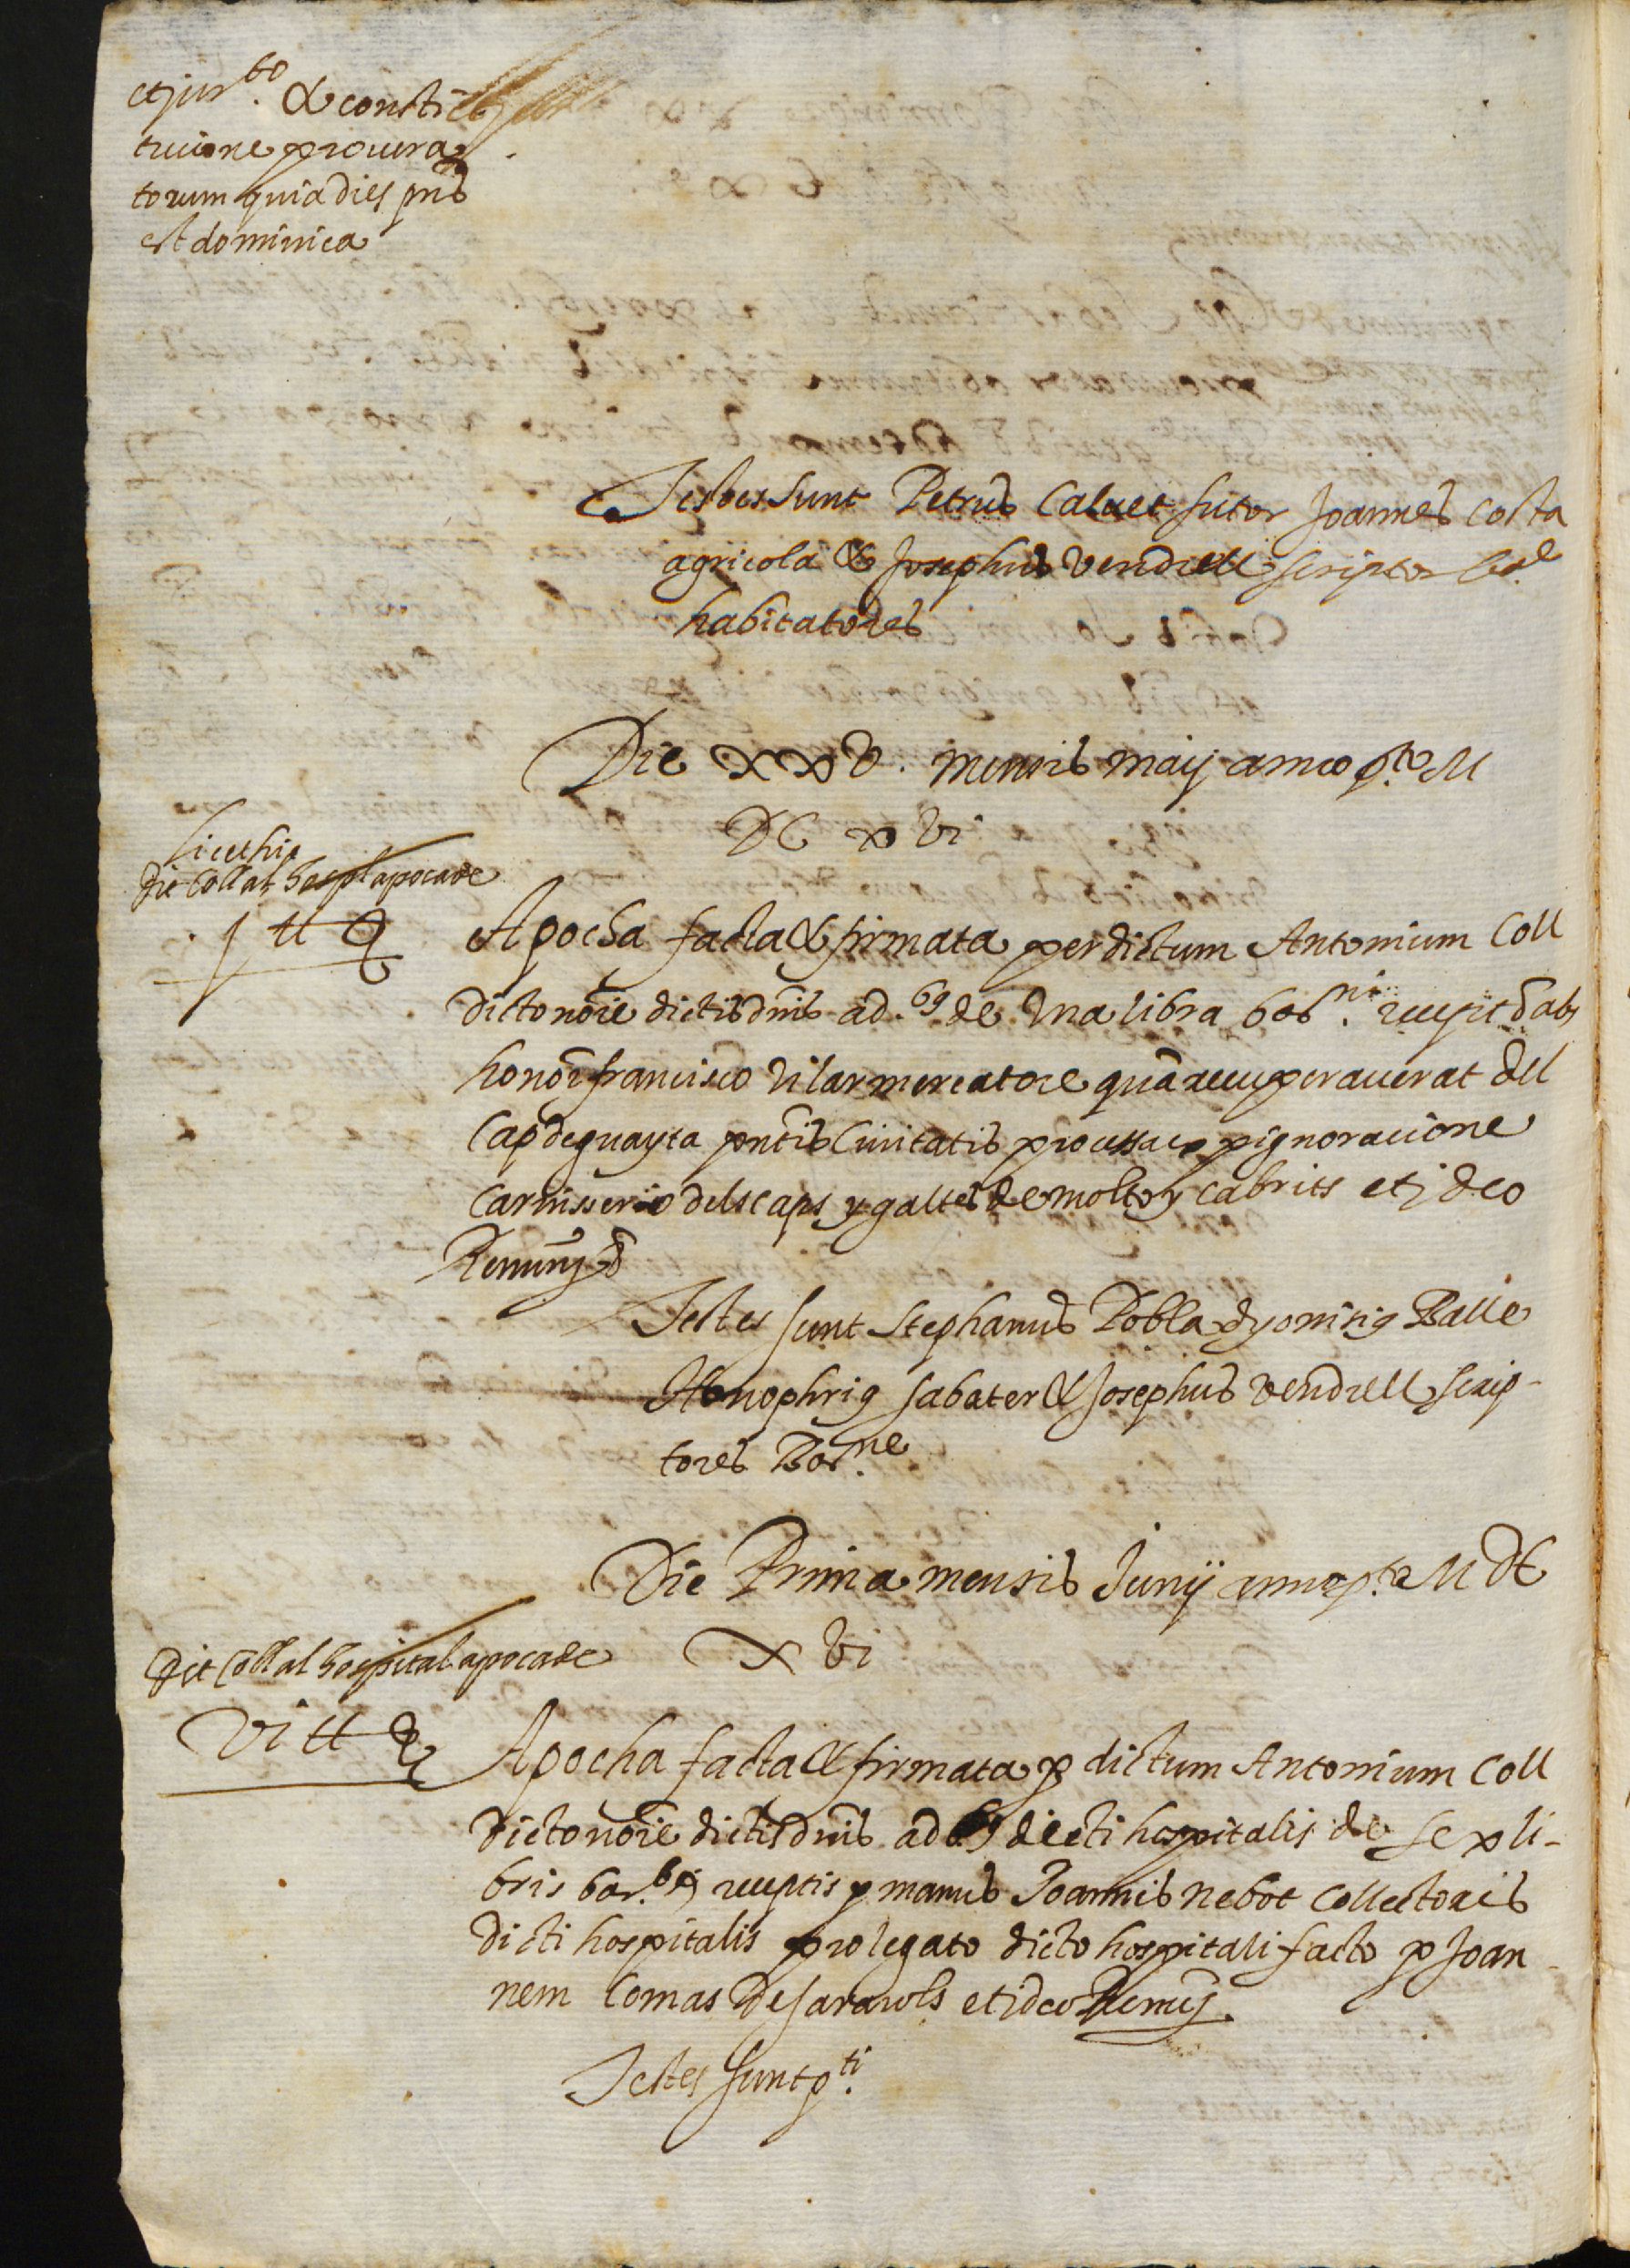 et jur.to & consti
tucione procura
torum quia dies pnīs
est dominica
Testes sunt Petrus Calvet sutor Joannes Costa
agricola & Josephus Vendrell scriptor
habitatores
Die xxv. mensis maij anno p.to M
DC xvi
Licet hic
dit Coll al hospl apoca de
j ll
Apocha facta & firmata per dictum Antonium Coll
dicto noīe dictis dnīs ad. de una libra recepit ab
honor francisco vilar mercatore quā recuperaverat del
Cap de guayta pntīs Civitatis pro pignoracione
dels caps y galtes de molto y cabrits et ideo
Renun
Testes sunt Stephanus Pobla dyonisiꝰ Balle
Honophriꝰ sabater & Josephus Vendrell scrip-
tores Bar.ne
Die Prima mensis Junij anno p.to M DC
x vi
dit Coll al hospital apoca de
vi ll
Apocha facta & firmata p dictum Antonium Coll
dicto noīe dictis dnīs ad dicti hospitalis de sex li-
bris receptis p manus Joannis nebot Collectoris
dicti hospitalis pro legato dicto hospitali facto p Joan
nem Comas de et ideo
Testes sunt p.ti